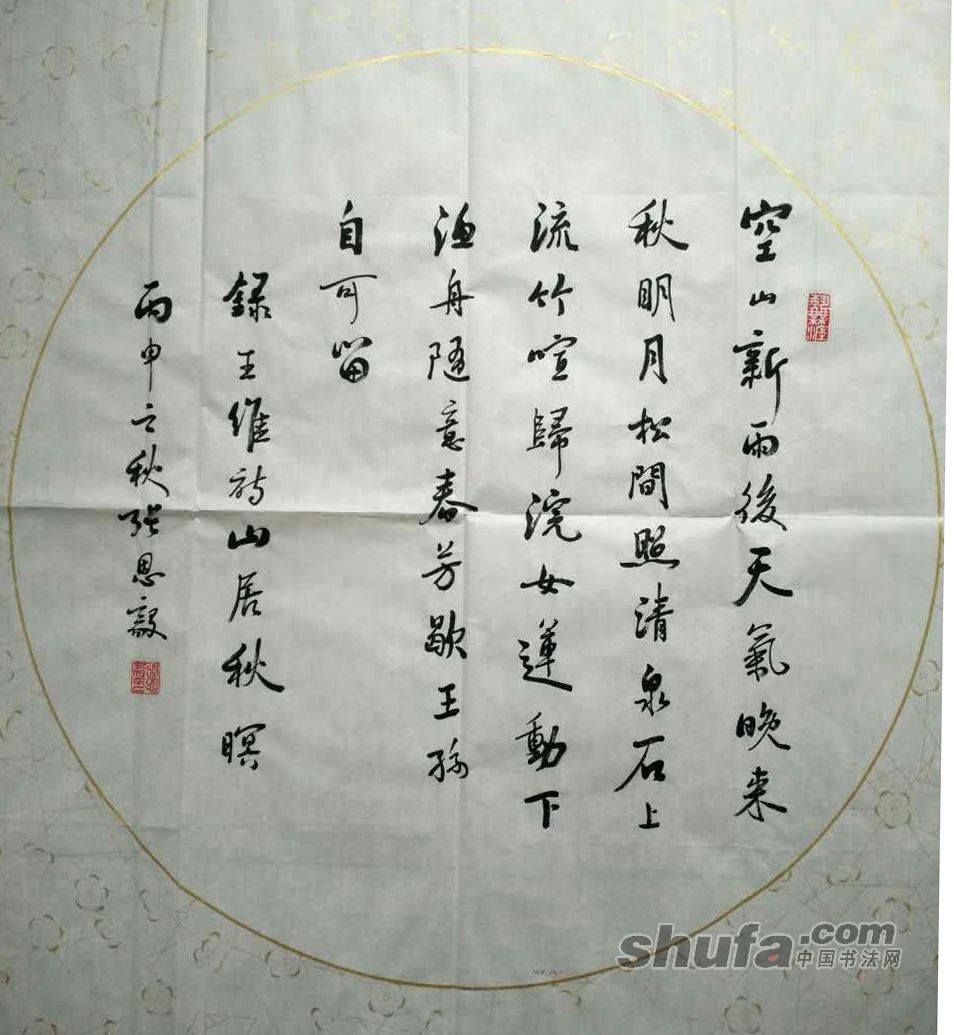 空山新雨後天氣晚来
秋明月松間照清泉石上
流竹喧歸浣女蓮動下
漁舟随意春芳歇王孫
自可留
錄王維詩山居秋暝
丙申之秋張恩毅
shufa.com
中国书法网